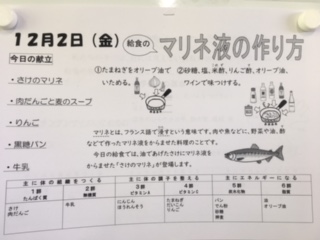 12月2日（金）給食の マリネ液の作り方
今日の献立
・さけのマリネ
・肉だんごと麦のスープ
・りんご
・黒糖パン
・牛乳
①たまねぎをオリーブ油で
いためる。
②砂糖、塩、米酢、りんご酢、オリーブ油、
ワインで味つけする。
マリネとは、フランス語で浸すという意味です。肉や魚などに、野菜や油、酢
などで作ったマリネ液をからませた料理のことです。
今日の給食では、油であげたさけにマリネ液を
からませた「さけのマリネ」が登場します。
主に体の組織をつくる 主に体の調子を整える 主にエネルギーになる
1群 2群 3群 4群 5群 6群
たんぱく質
さけ
肉だんご
牛乳
にんじん
ほうれんそう
たまねぎ
だいこん
りんご
パン
でん粉
砂糖
麦
油
オリーブ油